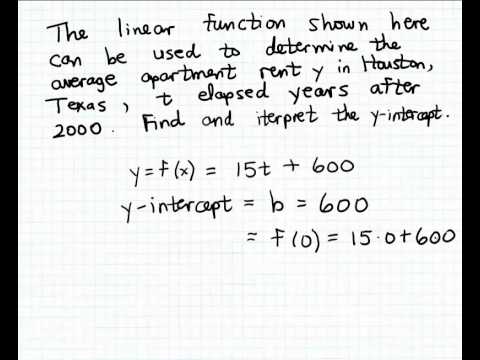 The linear function shown here
can be used to determine the
average apartment rent y in Houston,
Texas, t elapsed years after
2000. Find and iterpret the y-intercept.
y=f(x) = 15t + 600
y-intercept = b = 600
= f(0) = 15·0+600